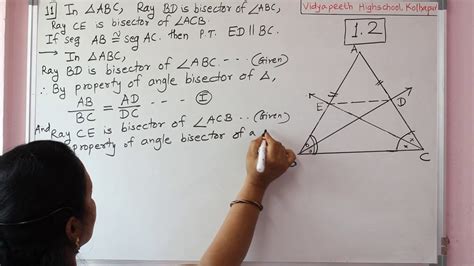 Vidyapeeth Highschool, Kolhapur
1.2
11] In △ABC, Ray BD is bisector of ∠ABC,
Ray CE is bisector of ∠ACB.
If seg AB ≅ seg AC. then P.T. ED || BC.
→ In △ABC,
Ray BD is bisector of ∠ABC - - - (Given)
∴ By property of angle bisector of △,
AB/BC = AD/DC - - - - Ⓘ
And Ray CE is bisector of ∠ACB . . (Given)
property of angle bisector of a
A
E
D
C
x
x